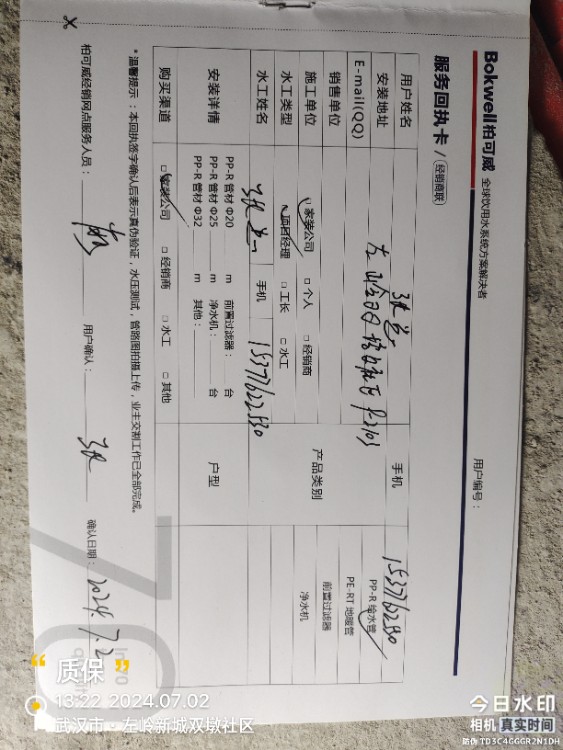 Bokwell柏可威 全球饮用水系统方案解决者
服务回执卡 / 经销商联
用户编号：
用户姓名 手机
安装地址
E-mail(QQ)
销售单位 产品类别 PP-R 给水管
PE-RT 地暖管
前置过滤器
净水机
施工单位 家装公司 □ 个人 □ 经销商
水工类型 项目经理 □ 工长 □ 水工
水工姓名 手机 15377622530
安装详情 PP-R 管材 Φ20 m 前置过滤器： 台
PP-R 管材 Φ25 m 净水机： 台
PP-R 管材 Φ32 m 其他：
户型
购买渠道 □ 家装公司 □ 经销商 □ 水工 □ 其他
*温馨提示：本回执签字确认后表示真伪验证，水压测试，管路图拍摄上传，业主交割工作已全部完成。
柏可威经销网点服务人员： 用户确认： 确认日期： 2024.7.2
“质保”
13:22 2024.07.02
武汉市·左岭新城双墩社区
今日水印
相机 真实时间
防伪 TD3C4GGGR2N1DH